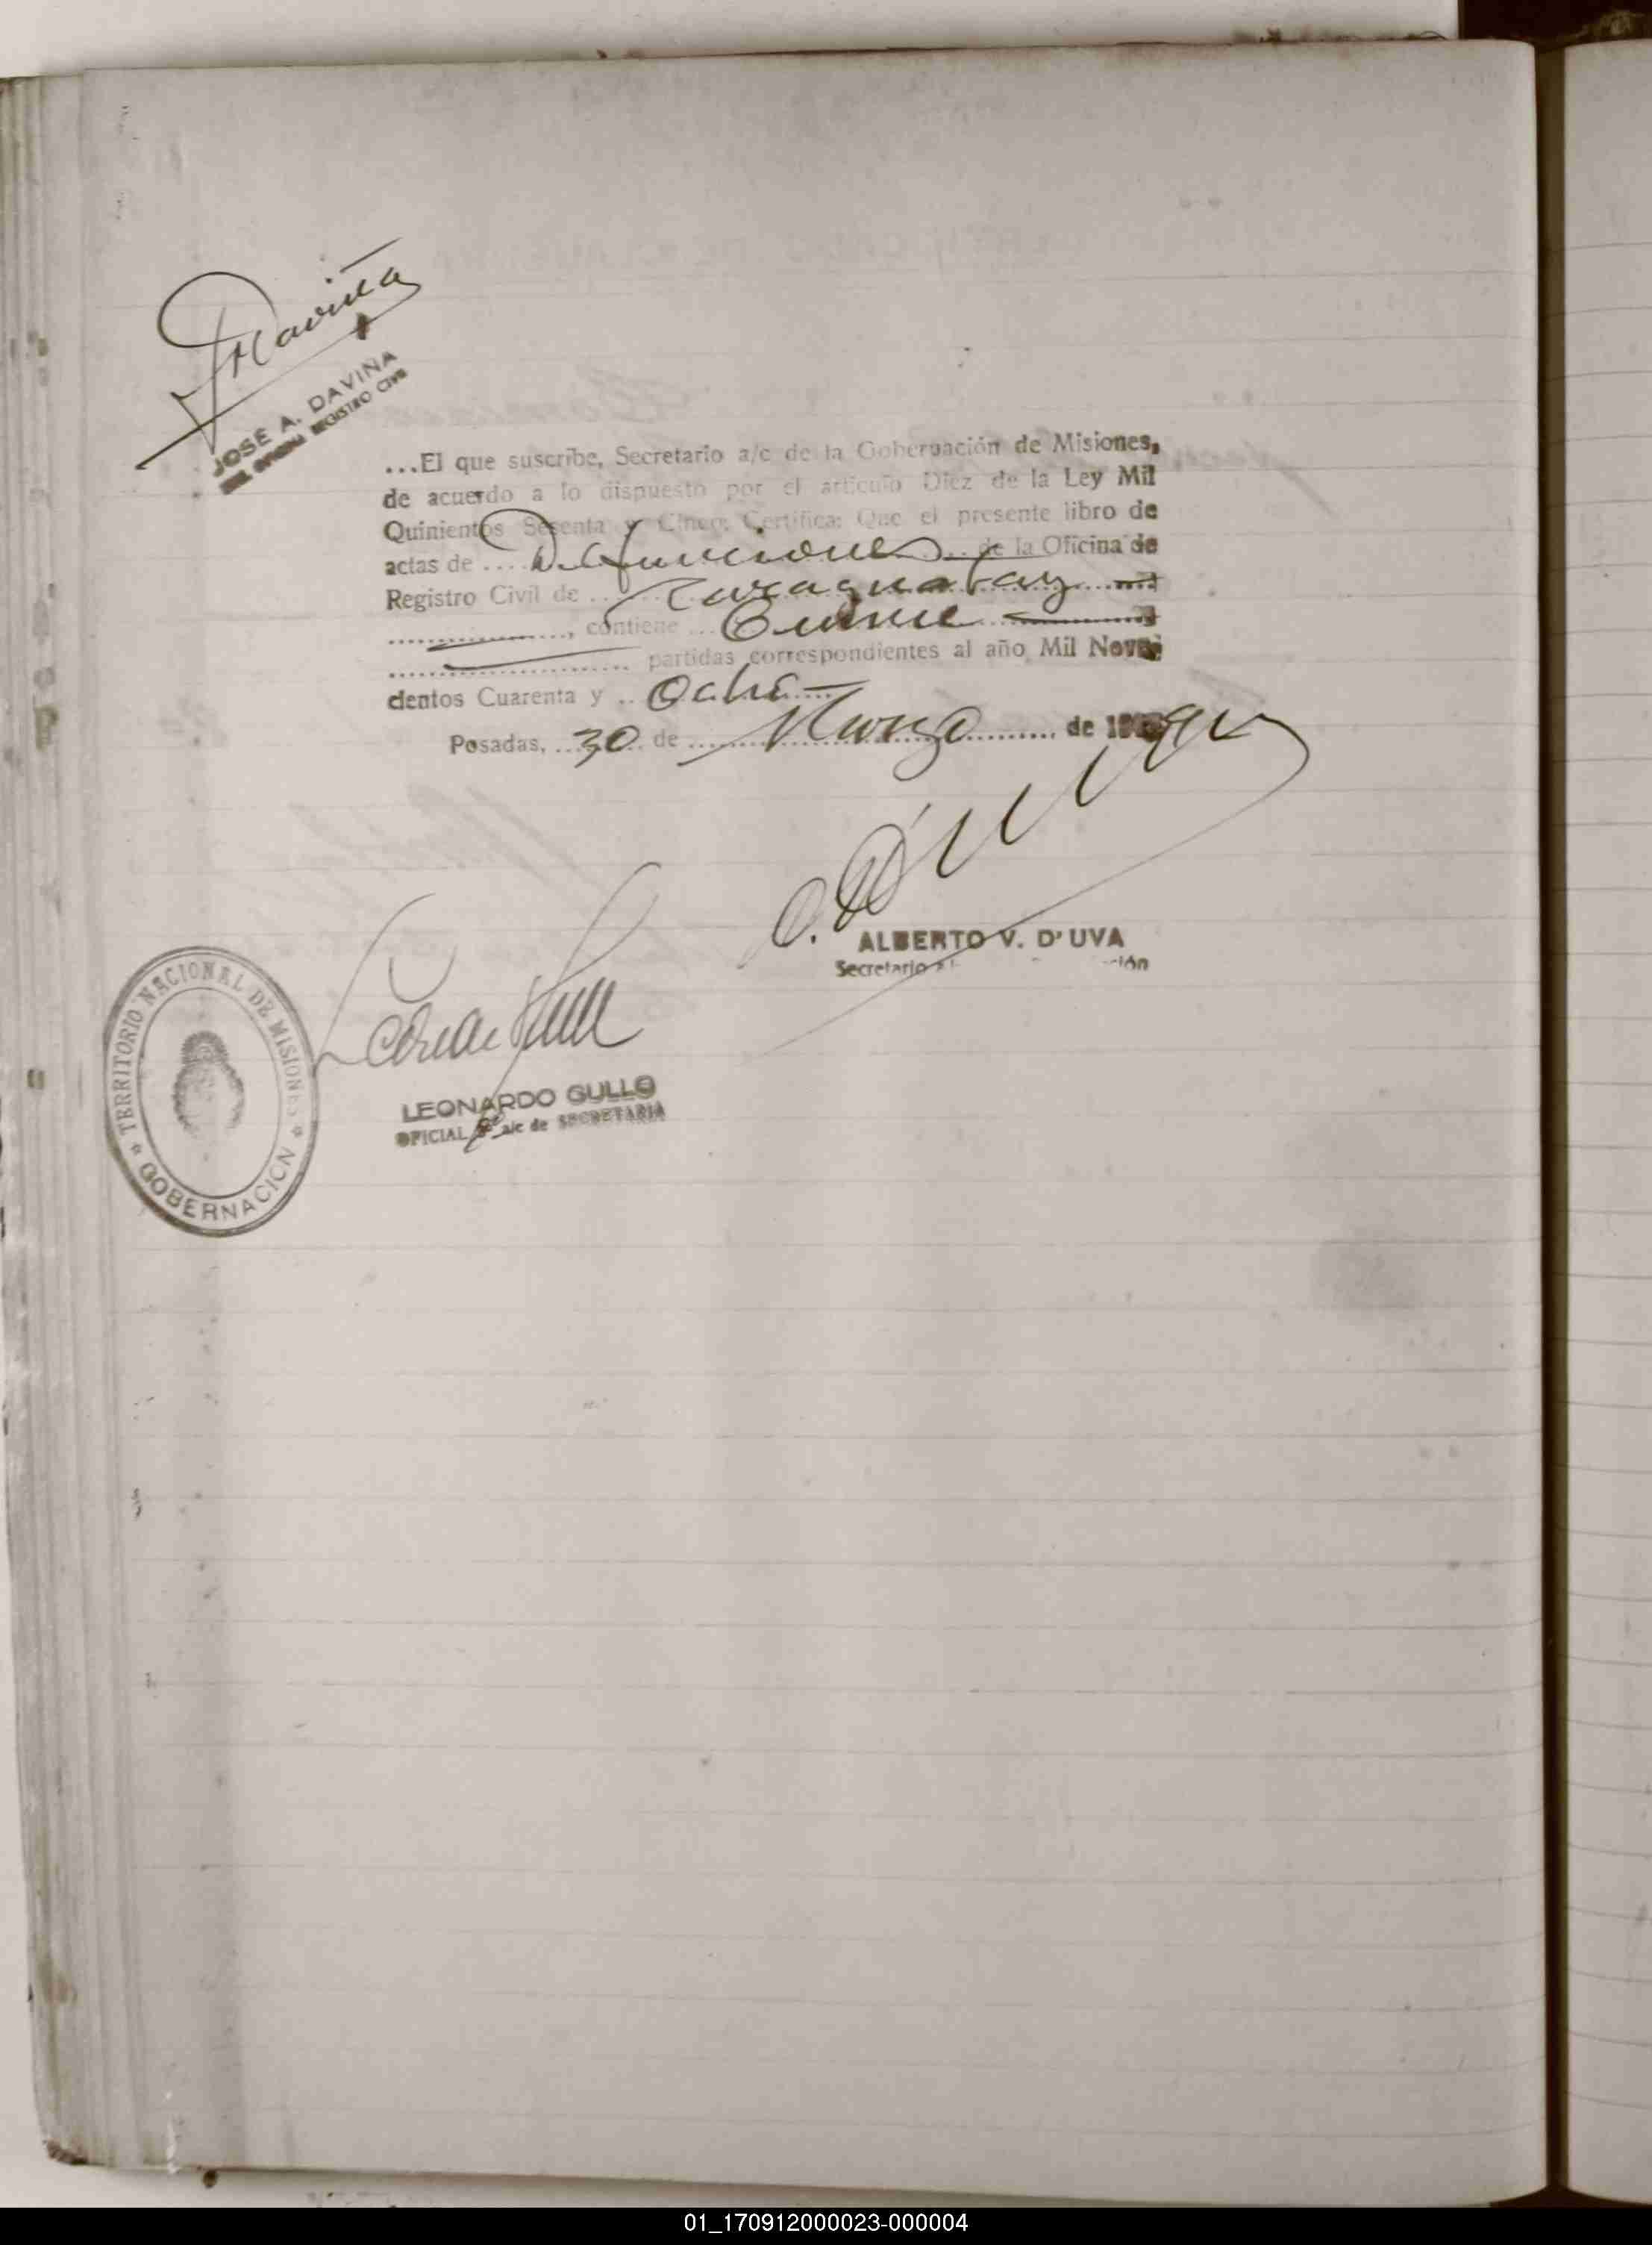 JDaviña
JOSÉ A. DAVIÑA
REGISTRO CIVIL
...El que suscribe, Secretario a/c de la Gobernación de Misiones,
de acuerdo a lo dispuesto por el artículo Diez de la Ley Mil
Quinientos Sesenta y Cinco; Certifica: Que el presente libro de
actas de .... Defunciones ... de la Oficina de
Registro Civil de ... Caraguatay
..............., contiene ...
.................... partidas correspondientes al año Mil Nove-
cientos Cuarenta y .. Ocho
Posadas, ...30... de ... Marzo ... de 19
ALBERTO V. D'UVA
Secretario
TERRITORIO NACIONAL DE MISIONES
* GOBERNACION *
LEONARDO GULLO
OFICIAL a/c de SECRETARIA
01_170912000023-000004